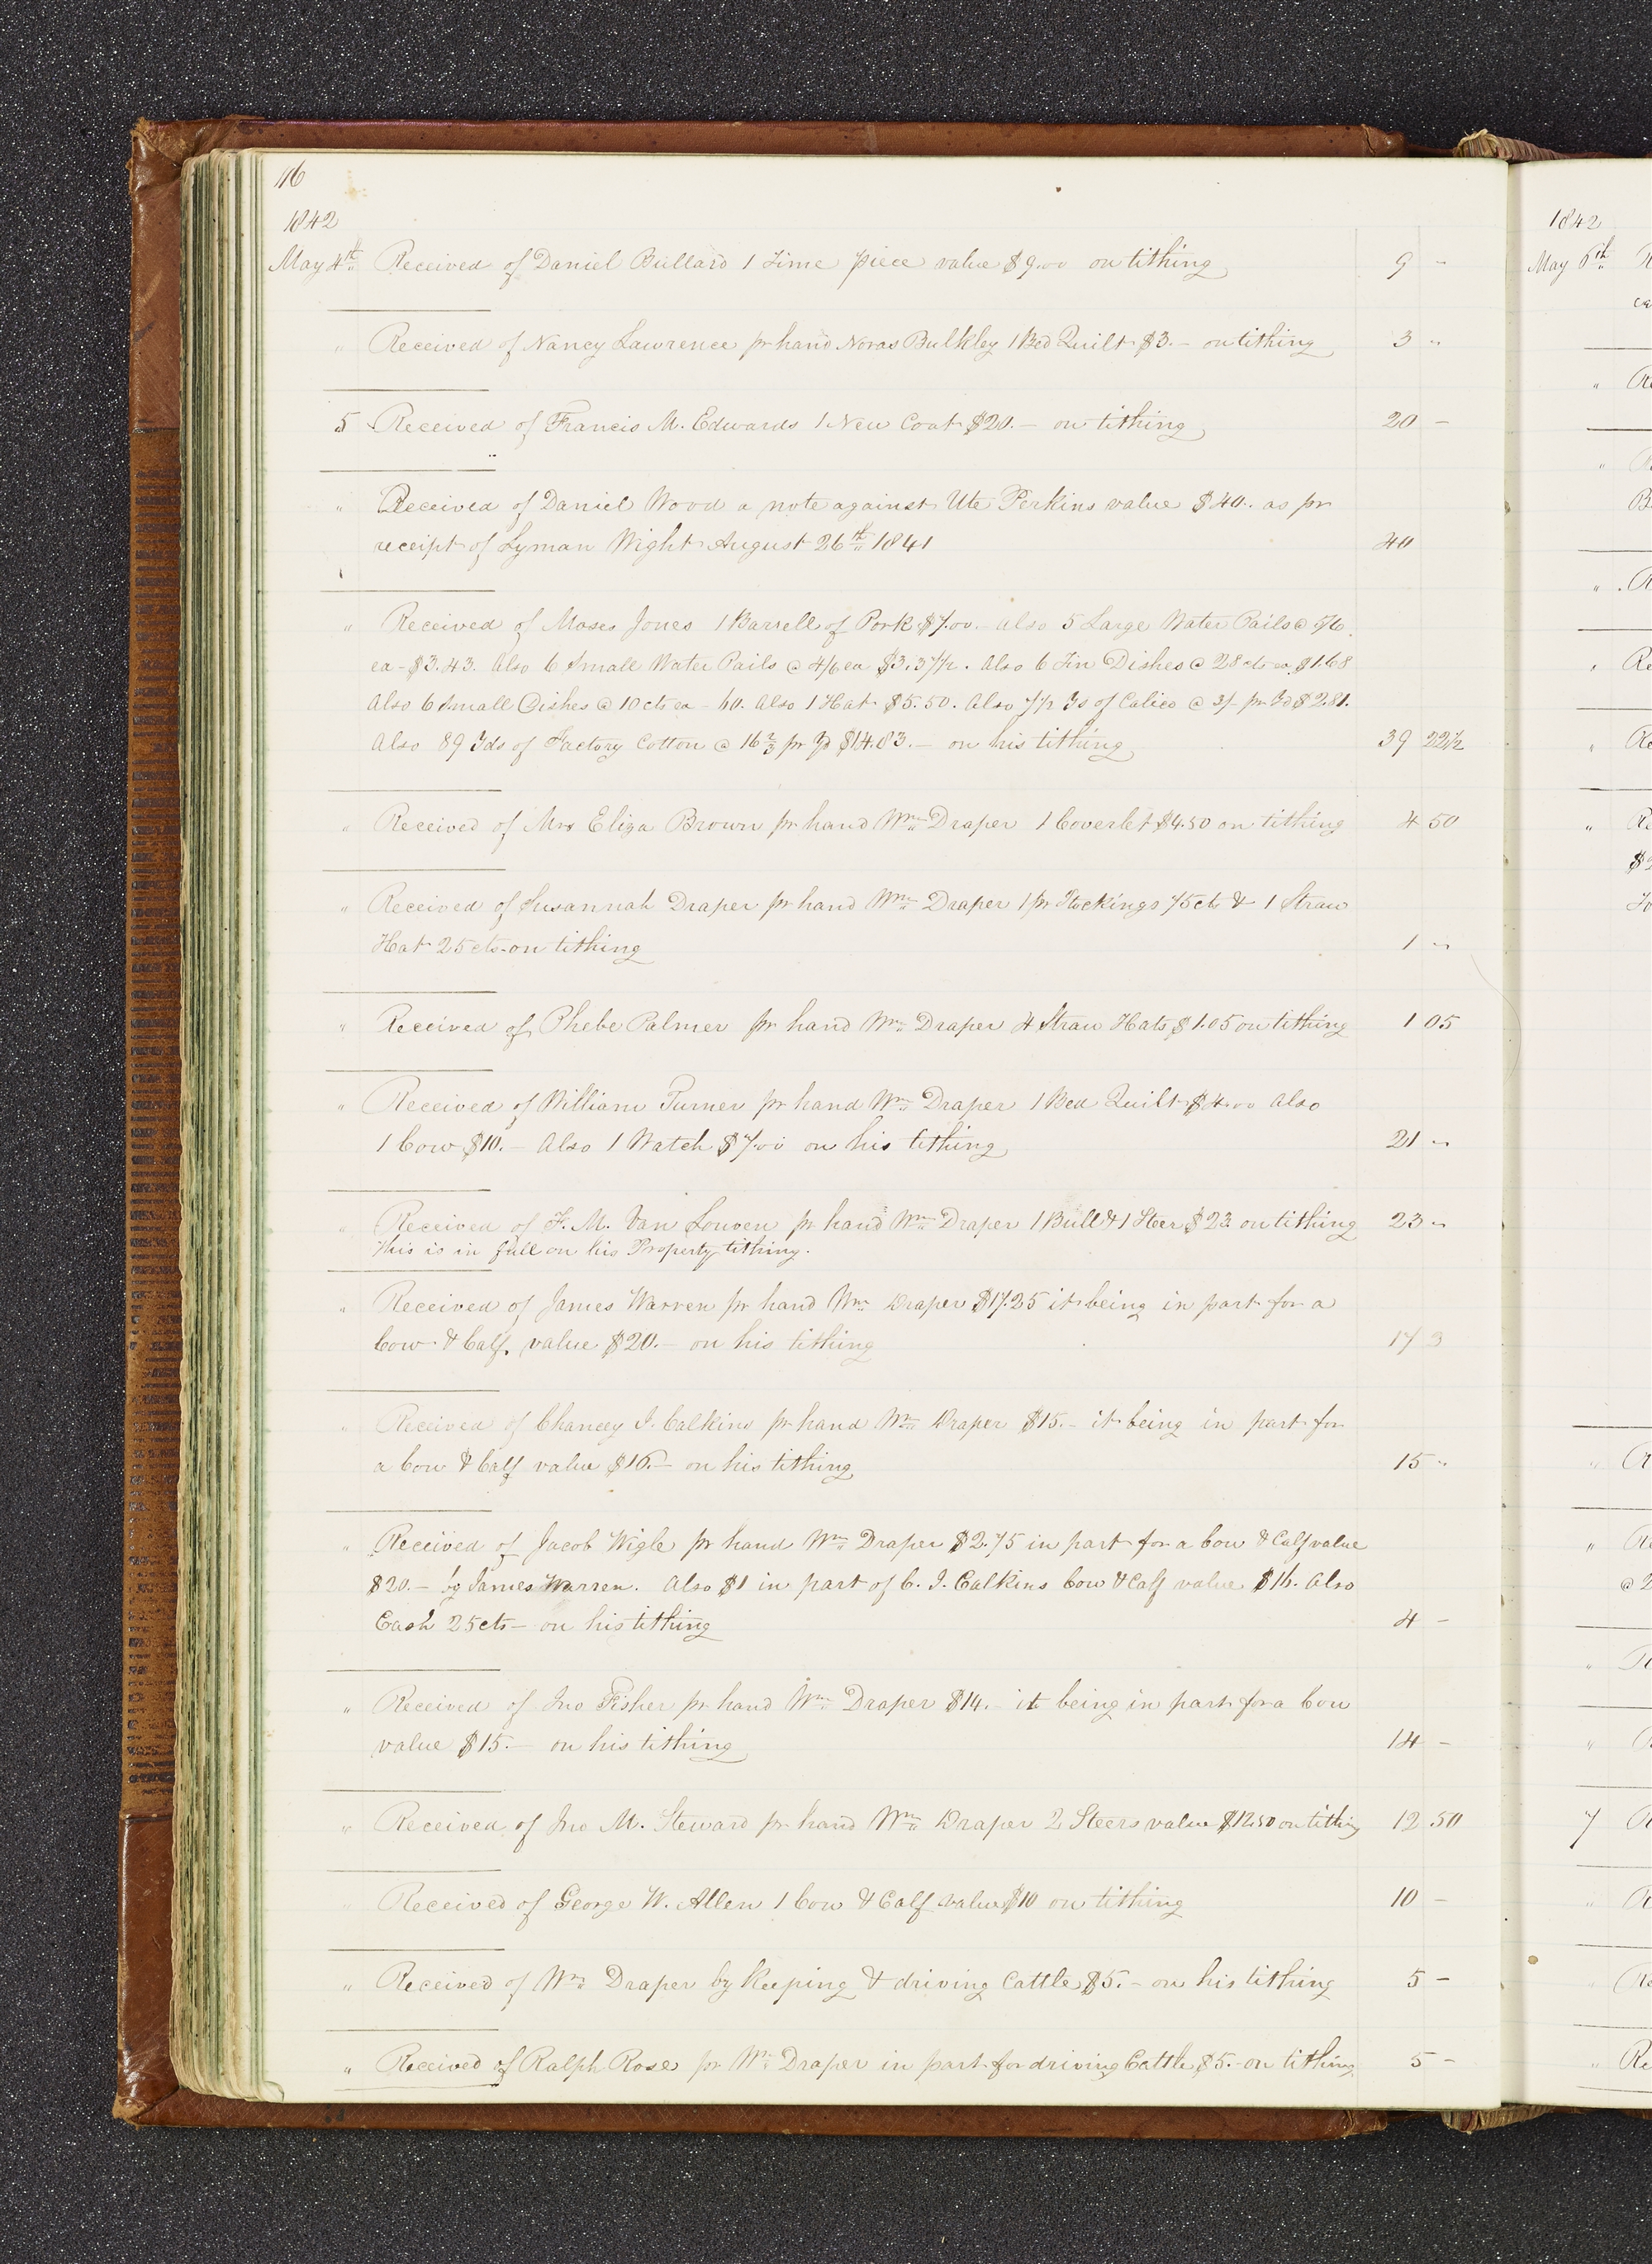 116
1842
May 4th Received of Daniel Bullard 1 Time piece value $9.00 on tithing 9 -
" Received of Nancy Lawrence pr hand Noras Bulkley 1 Bed Quilt $3.- on tithing 3 "
5 Received of Francis M. Edwards 1 New Coat $20.- on tithing 20 -
" Received of Daniel Wood a note against Ute Perkins value $40.. as pr
receipt of Lyman Wight August 26th 1841 40
" Received of Moses Jones 1 Barrell of Pork $7.00.- also 5 Large Water Pails @ 5/6
ea - $3.43. Also 6 Small Water Pails @ 4/6 ea $3.37½. Also 6 Tin Dishes @ 28 cts ea $1.68
Also 6 Small Dishes @ 10 cts ea - 60. Also 1 Hat $5.50. Also 7½ Yds of Calico @ 3/- pr Yd $2.81.
Also 89 Yds of Factory Cotton @ 16⅔ pr Yd $14.83.- on his tithing 39 22½
" Received of Mrs Eliza Brown pr hand Wm Draper 1 Coverlet $4.50 on tithing 4 50
" Received of Susannah Draper pr hand Wm Draper 1 pr Stockings 75 cts & 1 Straw
Hat 25 cts - on tithing 1 "
" Received of Phebe Palmer pr hand Wm Draper 4 Straw Hats $1.05 on tithing 1 05
" Received of William Turner pr hand Wm Draper 1 Bed Quilt $4.00 Also
1 Cow $10.- Also 1 Watch $7.00 on his tithing 21 "
" Received of F. M. Van Leuven pr hand Wm Draper 1 Bull & 1 Steer $23 on tithing 23 "
This is in full on his Property tithing.
" Received of James Warren pr hand Wm Draper $17.25 it being in part for a
Cow & Calf. value $20.- on his tithing 17 3
" Received of Chancey I. Calkins pr hand Wm Draper $15.- it being in part for
a Cow & Calf value $16.- on his tithing 15 "
" Received of Jacob Wigle pr hand Wm Draper $2.75 in part for a Cow & Calf value
$20.- by James Warren. Also $1 in part of C. I. Calkins Cow & Calf value $16. Also
Cash 25 cts - on his tithing 4 -
" Received of Jno Fisher pr hand Wm Draper $14.- it being in part for a Cow
value $15.- on his tithing 14 -
" Received of Jno M. Steward pr hand Wm Draper 2 Steers value $12.50 on tithing 12 50
" Received of George W. Allen 1 Cow & Calf value $10 on tithing 10 -
" Received of Wm Draper by Keeping & driving Cattle $5.- on his tithing 5 -
" Received of Ralph Rose pr Wm Draper in part for driving Cattle $5.- on tithing 5 -
1842
May 6th
7